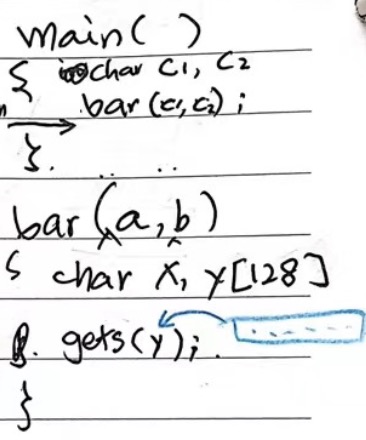 main( )
{ char c1, c2
bar(c1, c2);
}. .. ..
bar(a, b)
{ char x, y[128]
gets(y);
}